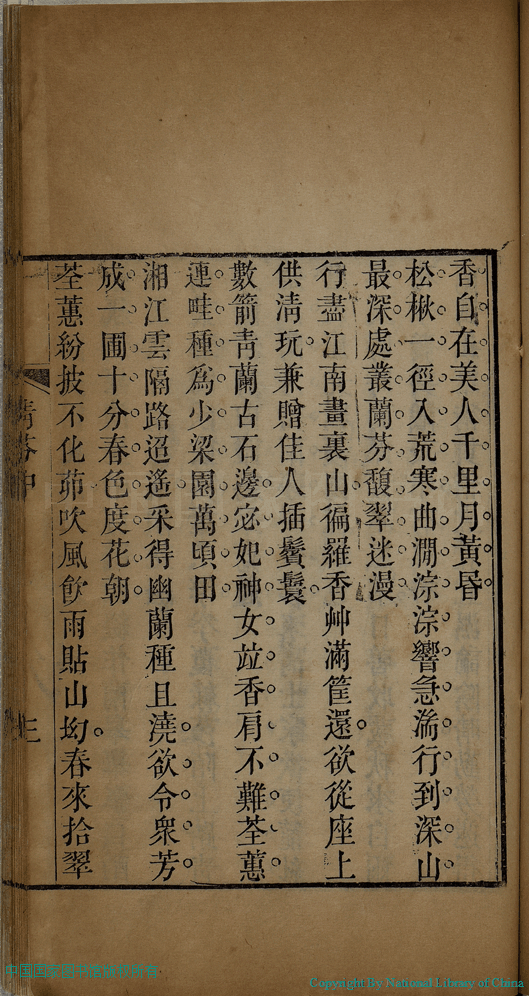 香自在美人千里月黃昏
松楸一徑入荒寒曲澗淙淙響急湍行到深山
最深處叢蘭芬馥翠迷漫
行盡江南畫裏山徧羅香艸滿筐還欲從座上
供淸玩兼贈佳人插鬢鬟
數箭靑蘭古石邊宓妃神女竝香肩不難荃蕙
連畦種爲少梁園萬頃田
湘江雲隔路迢遙采得幽蘭種且澆欲令衆芳
成一圃十分春色度花朝
荃蕙紛披不化茆吹風飮雨貼山坳春來拾翠
三
Copyright By National Library of China